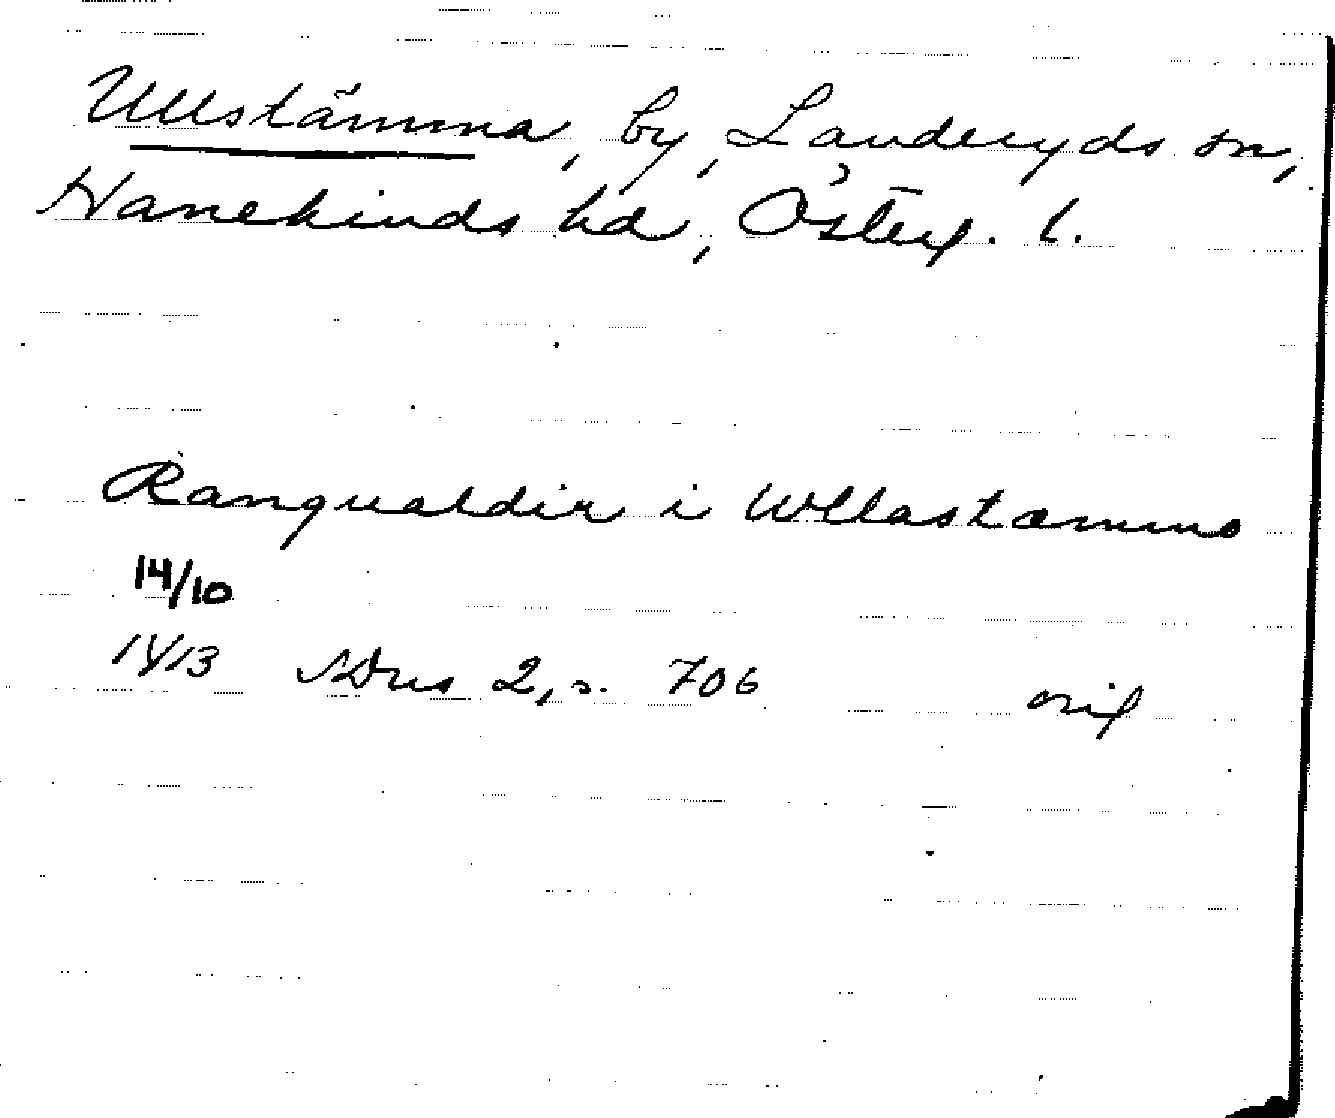 Ullstämma, by, Landeryds sn,
Hanekinds hd, Österg. l.
Rangualdir i Wllastæmmo
14/10
1413 SDns 2, s. 706 orig